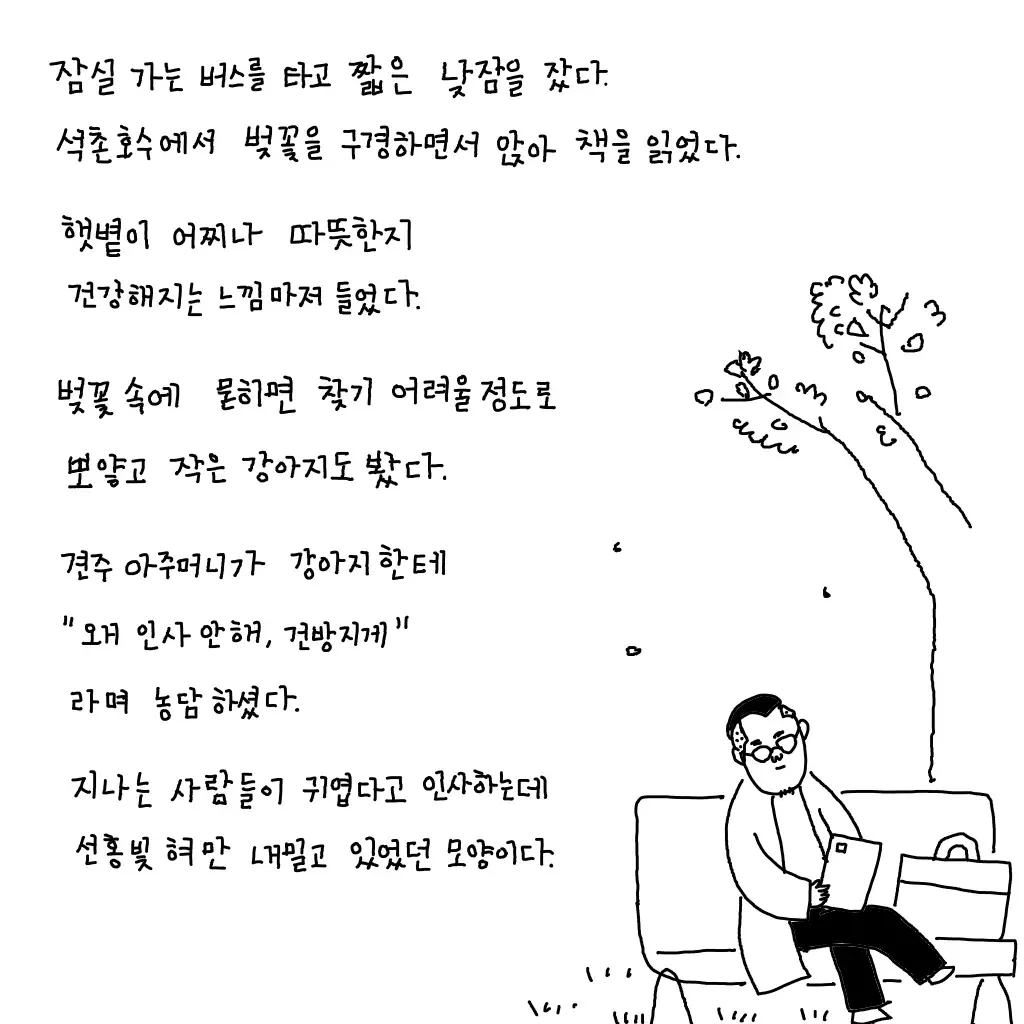 잠실 가는 버스를 타고 짧은 낮잠을 잤다.
석촌호수에서 벚꽃을 구경하면서 앉아 책을 읽었다.
햇볕이 어찌나 따뜻한지
건강해지는 느낌마저 들었다.
벚꽃 속에 묻히면 찾기 어려울 정도로
뽀얗고 작은 강아지도 봤다.
견주 아주머니가 강아지한테
"왜 인사 안해, 건방지게"
라며 농담하셨다.
지나는 사람들이 귀엽다고 인사하는데
선홍빛 혀만 내밀고 있었던 모양이다.